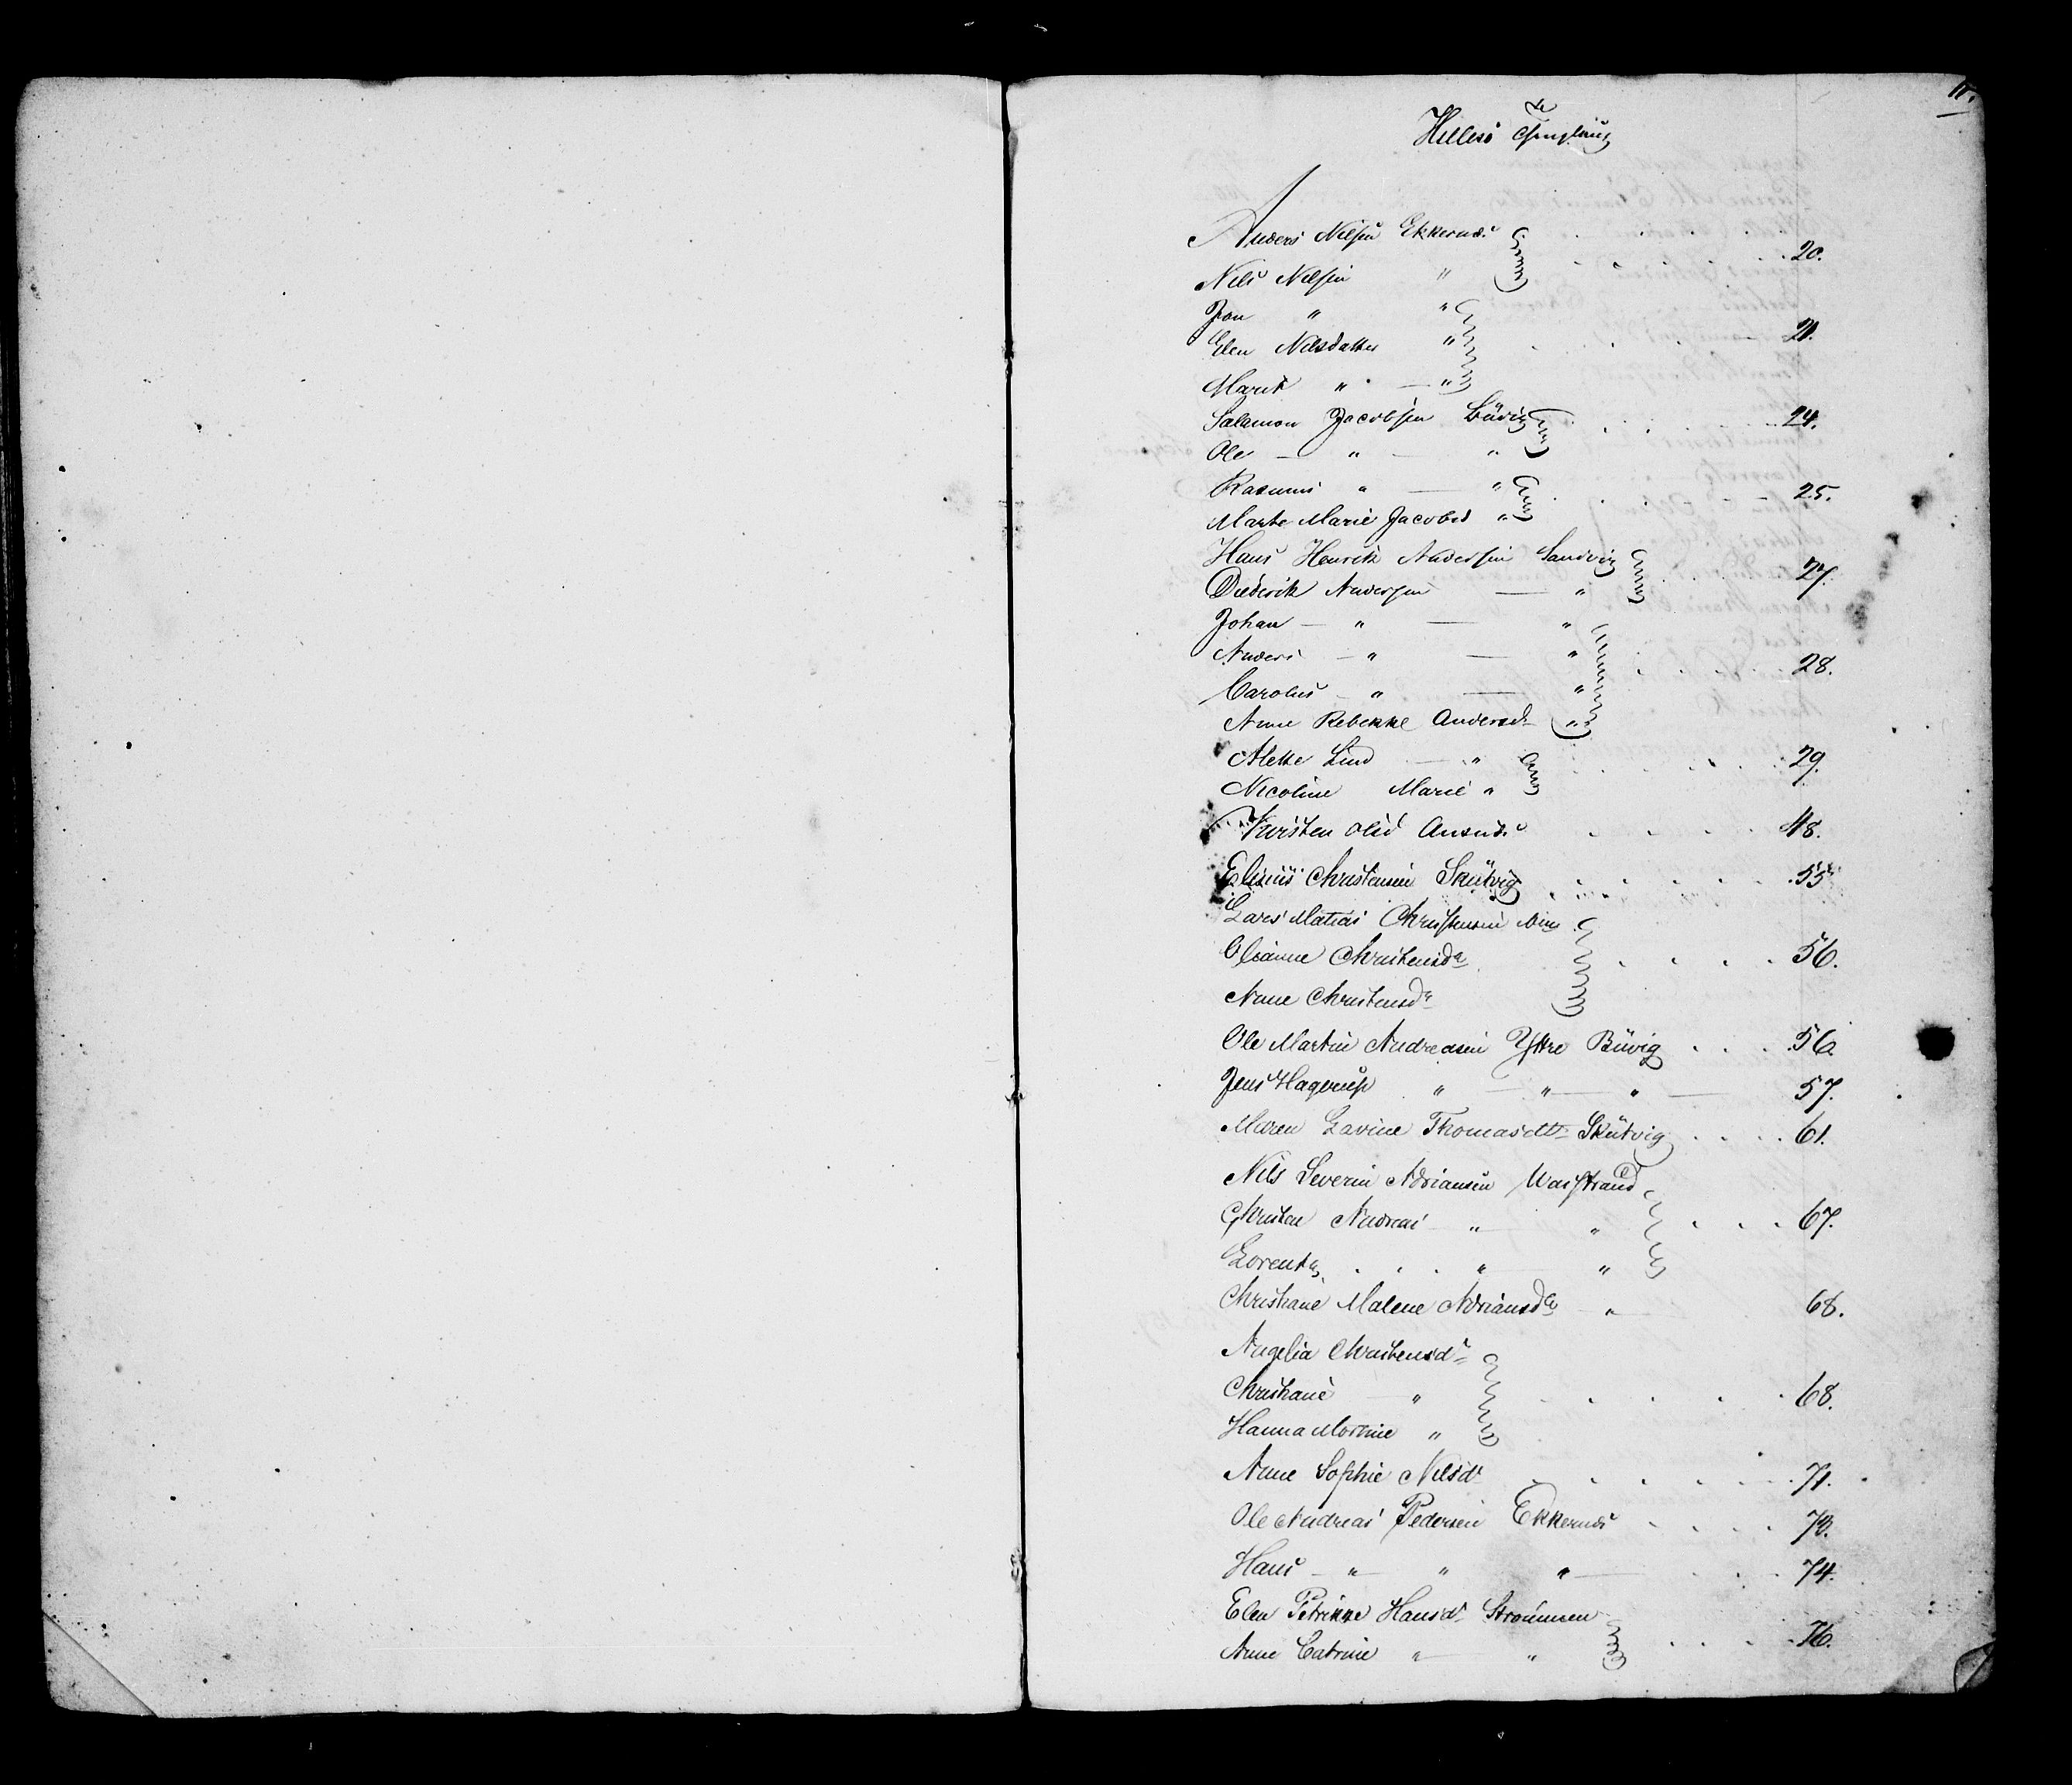 11.
Hillesø Thinglaug
Anders Nilsen Ekkernæs
20.
Nils Nilsen "
Jon " "
Elen Nilsdatter "
21.
Marit " — "
Salamon Jacobsen Büvig
24.
Ole — " — "
Rasmus " — "
25.
Marte Marie Jacobsd "
Hans Henrik Andersen Sandvig
27.
Diderik Andersen — "
Johan — " — "
Anders — " — "
28.
Carolus — " — "
Anne Rebekke Andersd "
Alette Lind — "
29.
Nicoline Marie "
Kristen Olsd
48.
Elisæus Christensen Skütvig
55
Lars Matias Christensen
Olianne Christensdr
56.
Anne Christensdr
Ole Martin Andreasen Yttre Büvig
56
Jens Hagerup " — " — " —
57.
Maren Lavine Thomasdtr Skütvig
61.
Nils Severin Adriansen Warstrand
Christen Andreas — " "
67.
Lorents " "
Christiane Malene Adriansdr — "
68.
Angelia Christensdr
Christiane "
68.
Hanna Martine "
Anne Sophie Nilsdr
71.
Ole Andreas Pedersen Ekkernæs
73.
Hans — " " " —
74.
Elen Petrikke Hansdr Strømmen
76.
Anne Catrine " "